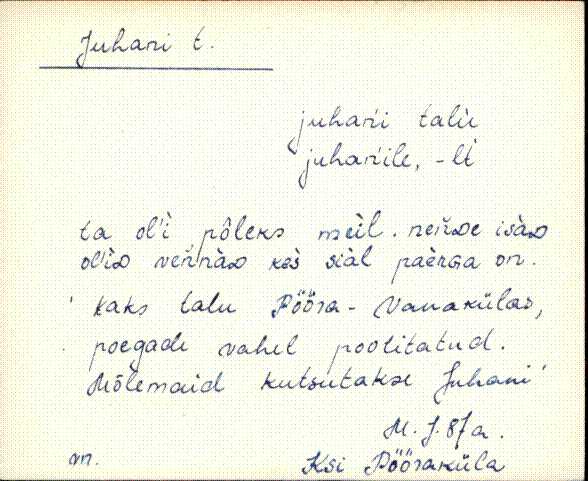 Juhani t.
juhani talu
juhanile, -lt
ta ol'i põleks meil. neńde isàD
ol'iD veńnàD kes siàl paèrga on.
Kaks talu Pööra-Vanakülas,
poegade vahel poolitatud.
Mõlemaid kutsutakse Juhani
M. J. 87 a.
vn. Ksi Pööraküla